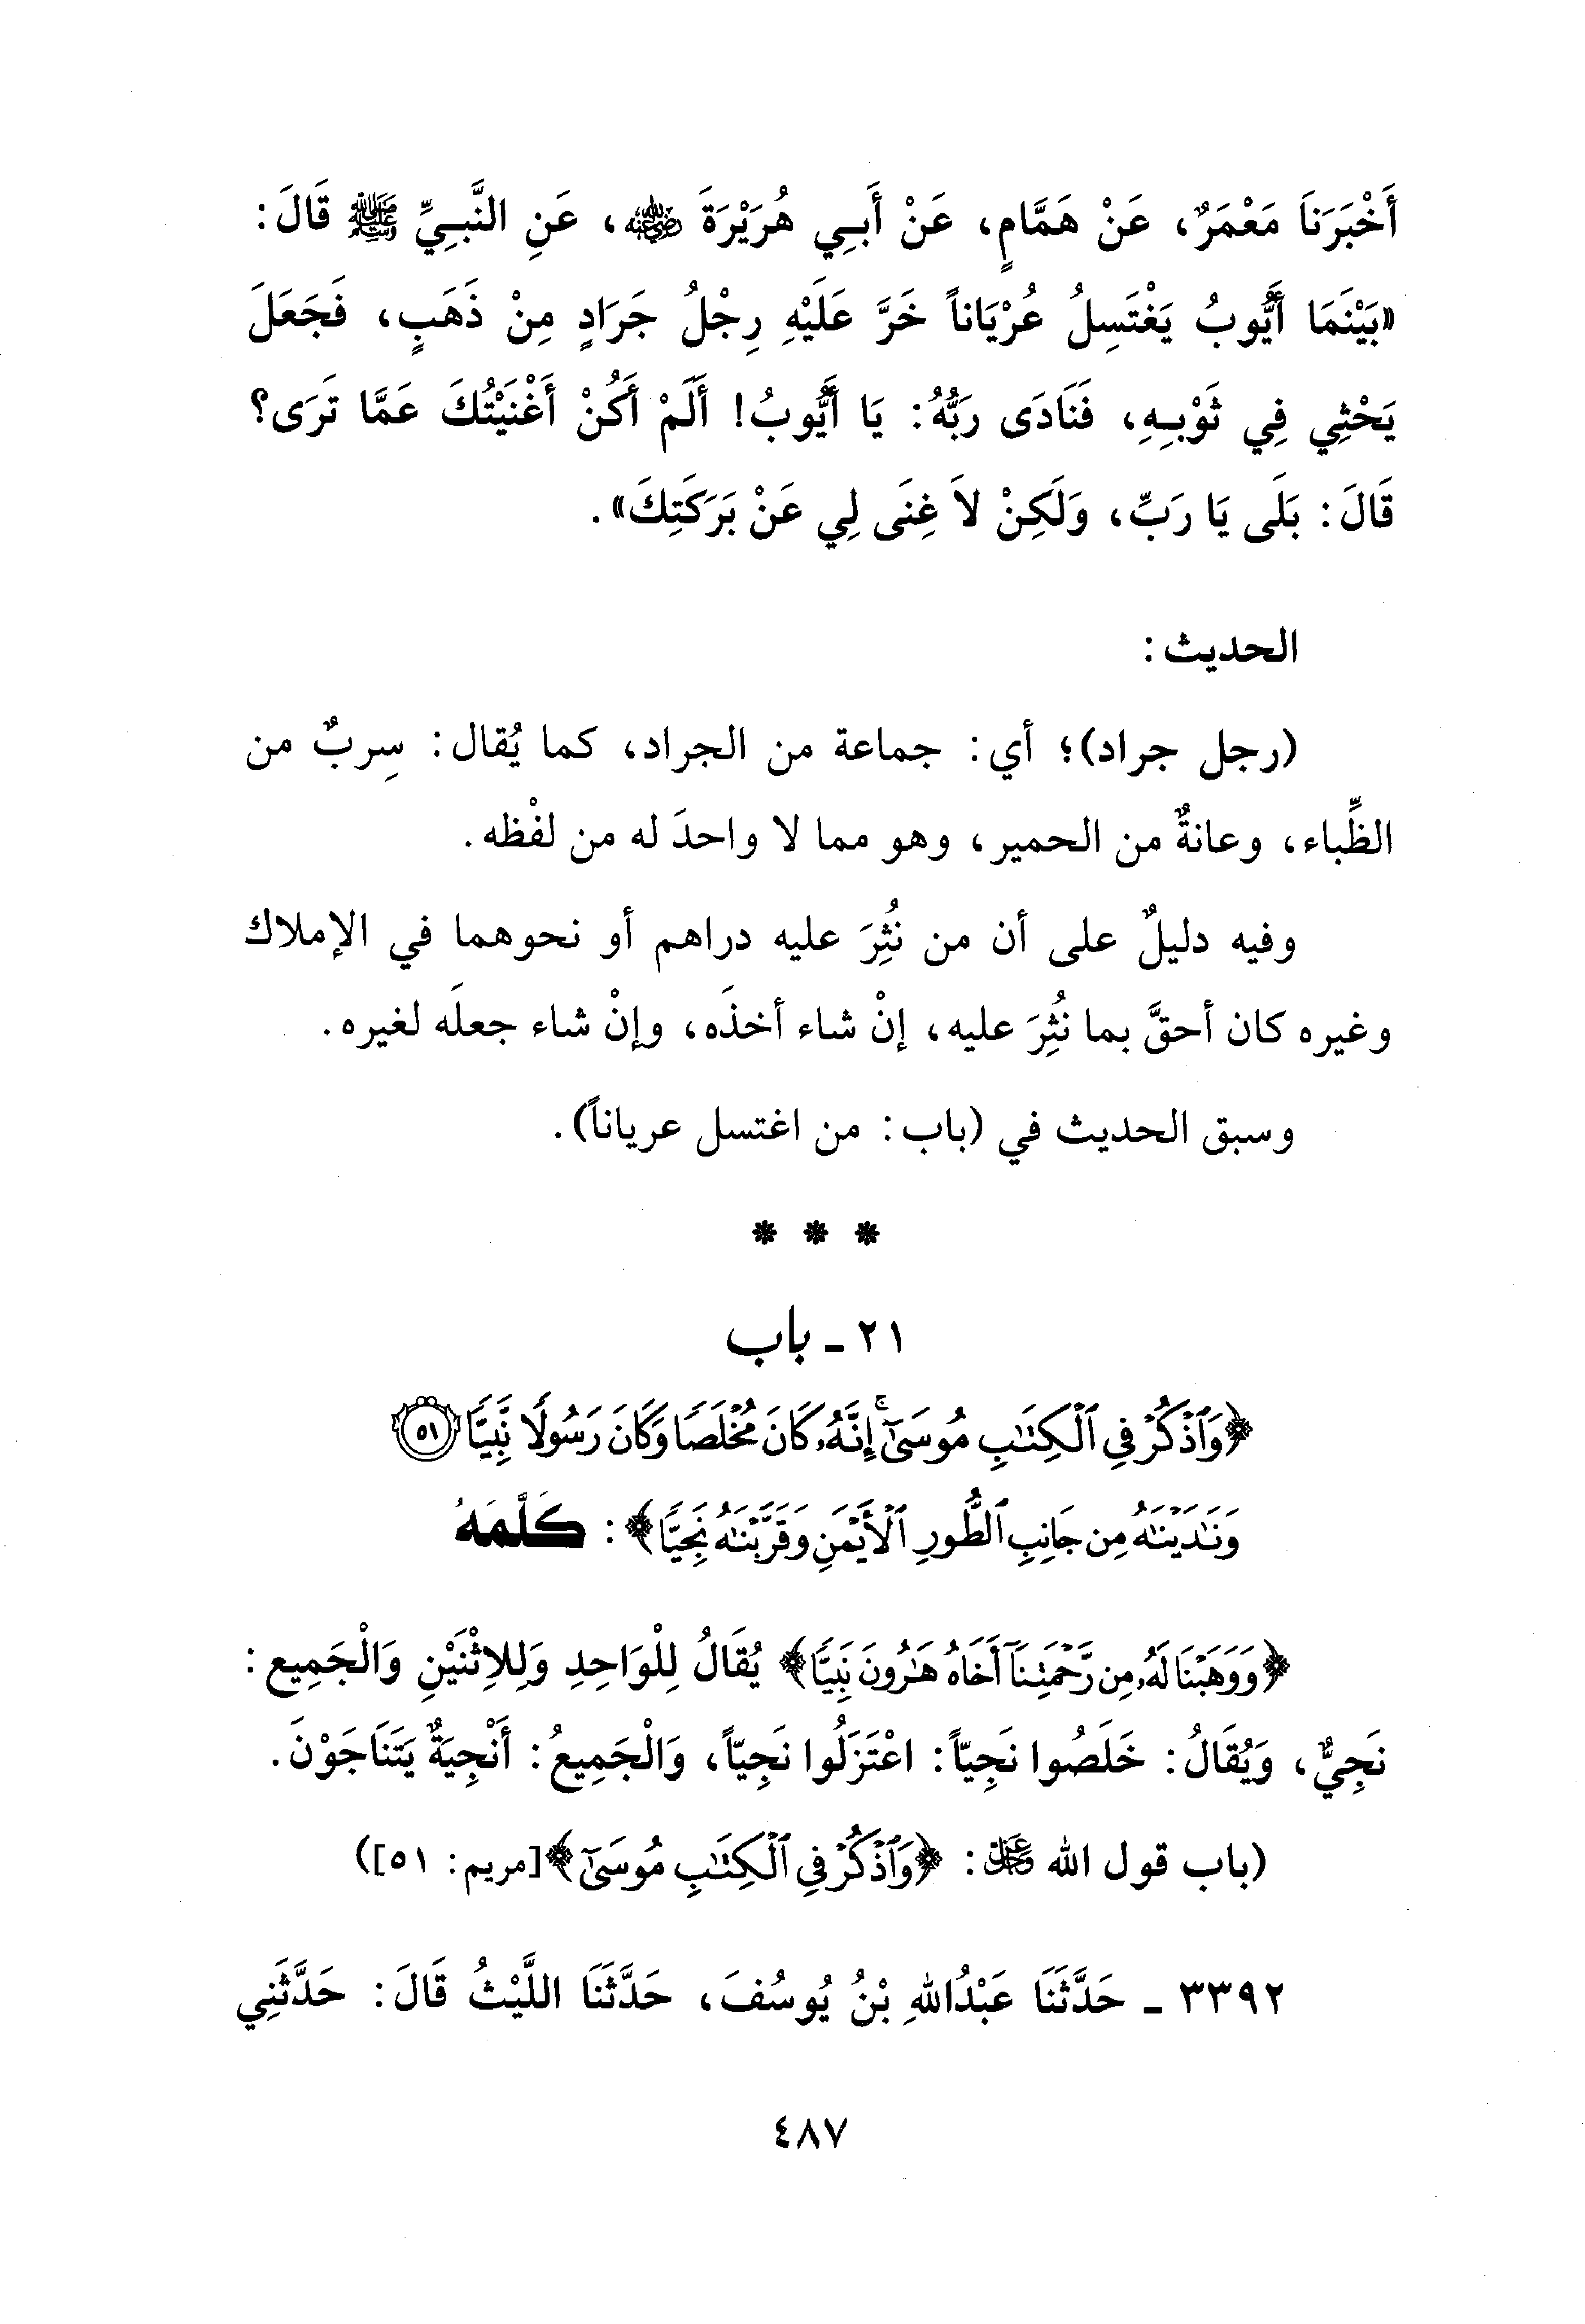 أَخْبَرَناَ مَعْمَرٌ، عَنْ هَمَّامٍ، عَنْ أَبِي هُرَيْرَةَ رضي الله عنه، عَنِ النَّبِيِّ ﷺ قَالَ:
«بَيْنَمَا أَيُّوبُ يَغْتَسِلُ عُرْيَاناً خَرَّ عَلَيْهِ رِجْلُ جَرَادٍ مِنْ ذَهَبٍ، فَجَعَلَ
يَحْثِي فِي ثَوْبِهِ، فَنَادَى رَبُّهُ: يَا أَيُّوبُ! أَلَمْ أَكُنْ أَغْنَيْتُكَ عَمَّا تَرَى؟
قَالَ: بَلَى يَا رَبِّ، وَلَكِنْ لاَ غِنَى لِي عَنْ بَرَكَتِكَ».
الحديث:
(رجل جراد)؛ أي: جماعة من الجراد، كما يُقال: سِربٌ من
الظِّباء، وعانةٌ من الحمير، وهو مما لا واحدَ له من لفْظه.
وفيه دليلٌ على أن من نُثِرَ عليه دراهم أو نحوهما في الإملاك
وغيره كان أحقَّ بما نُثِرَ عليه، إنْ شاء أخذَه، وإنْ شاء جعلَه لغيره.
وسبق الحديث في (باب: من اغتسل عرياناً).
* * *
٢١ - باب
﴿وَٱذْكُرْ فِي ٱلْكِتَٰبِ مُوسَىٰٓ ۚ إِنَّهُۥ كَانَ مُخْلَصًا وَكَانَ رَسُولًا نَّبِيًّا ٥١
وَنَٰدَيْنَٰهُ مِن جَانِبِ ٱلطُّورِ ٱلْأَيْمَنِ وَقَرَّبْنَٰهُ نَجِيًّا﴾: كَلَّمَهُ
﴿وَوَهَبْنَا لَهُۥ مِن رَّحْمَتِنَآ أَخَاهُ هَٰرُونَ نَبِيًّا﴾ يُقَالُ لِلْوَاحِدِ وَلِلاِثْنَيْنِ وَالْجَمِيع:
نَجِيٌّ، وَيُقَالُ: خَلَصُوا نَجِيّاً: اعْتَزَلُوا نَجِيّاً، وَالْجَمِيعُ: أَنْجِيَةٌ يَتَنَاجَوْنَ.
(باب قول الله عز وجل: ﴿وَٱذْكُرْ فِي ٱلْكِتَٰبِ مُوسَىٰٓ﴾ [مريم: ٥١])
٣٣٩٢ - حَدَّثَنَا عَبْدُاللهِ بْنُ يُوسُفَ، حَدَّثَنَا اللَّيْثُ قَالَ: حَدَّثَنِي
٤٨٧